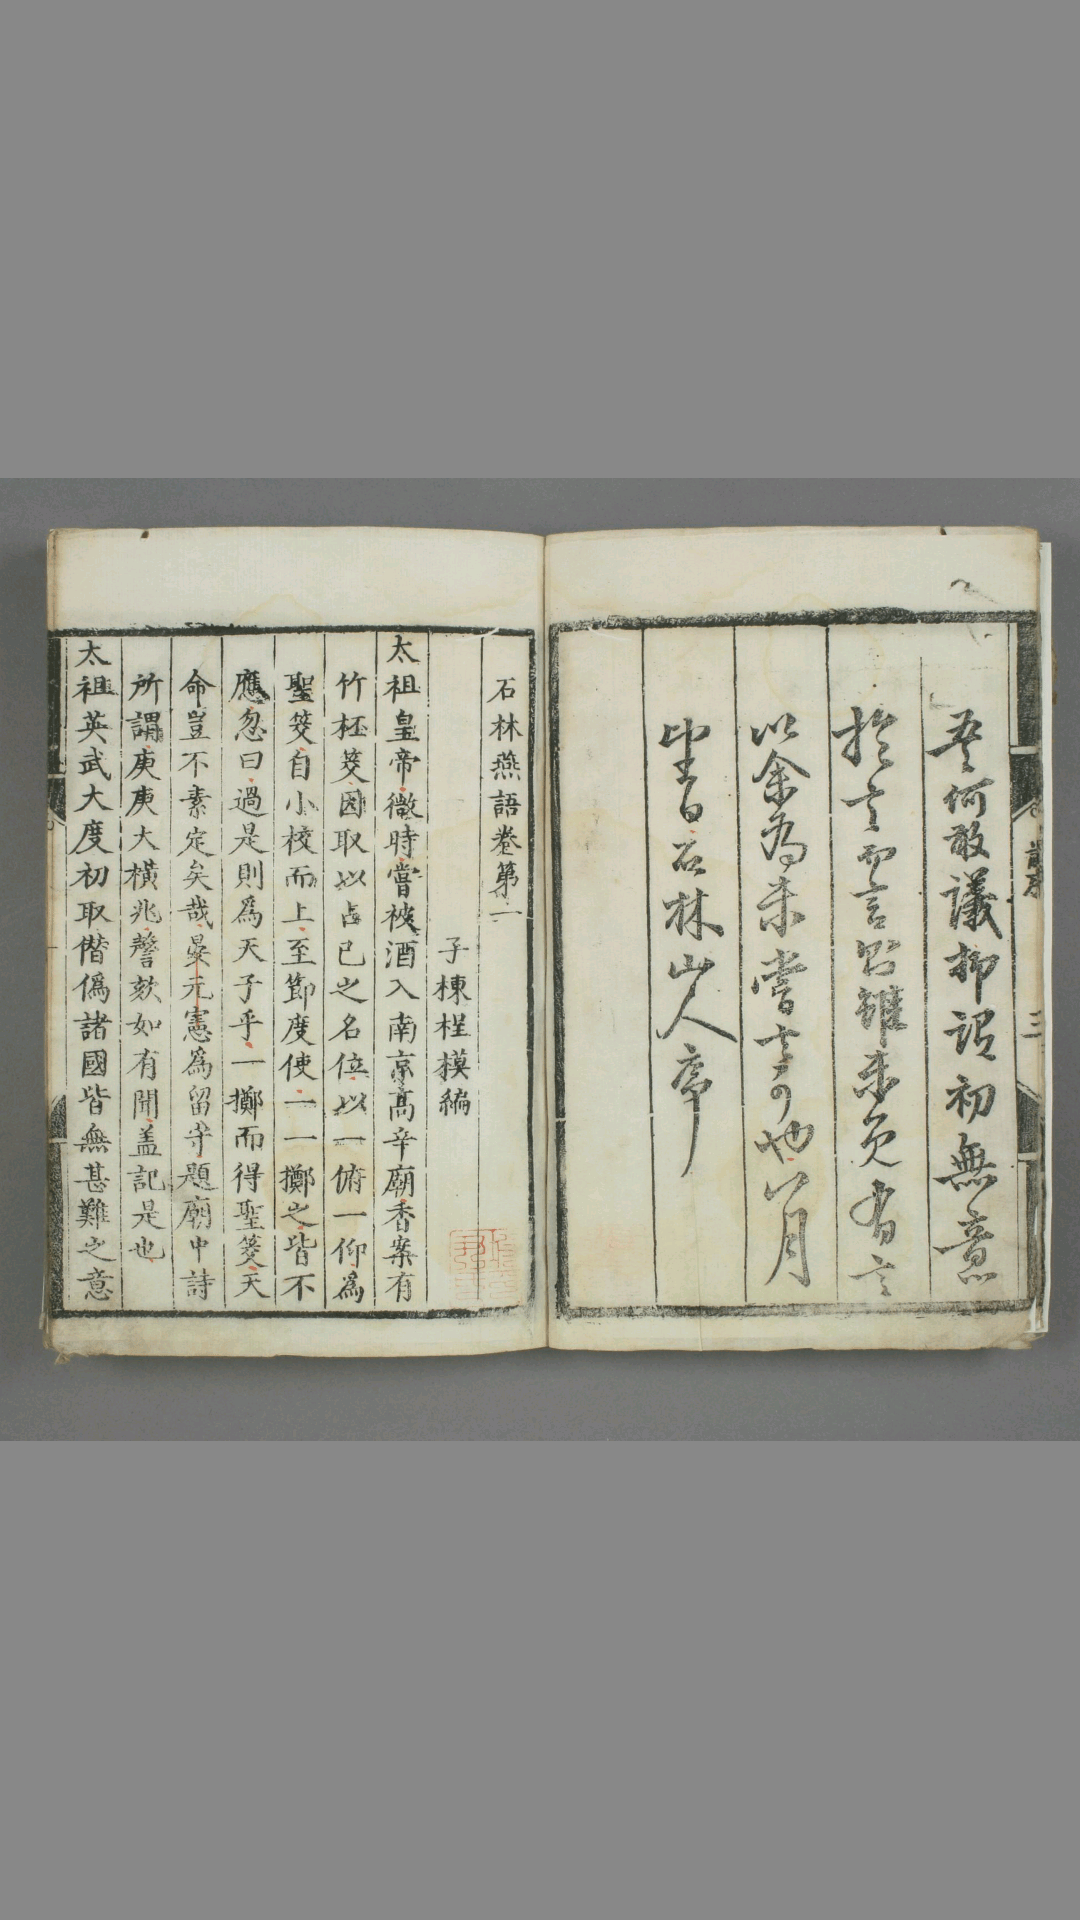 吾何敢議抑謂初無意
於言而言則雖未免有言
以余為未嘗言可也八月
望日石林山人序
三
石林燕語卷第一
子棟桯模編
太祖皇帝微時嘗被酒入南京髙辛廟香案有
竹柸筊因取以占已之名位以一俯一仰爲
聖筊自小校而上至節度使一一擲之皆不
應忽曰過是則爲天子乎一擲而得聖筊天
命豈不素定矣哉晏元憲爲留守題廟中詩
所謂庚庚大橫兆謦欬如有聞盖記是也
太祖英武大度初取僭僞諸國皆無甚難之意